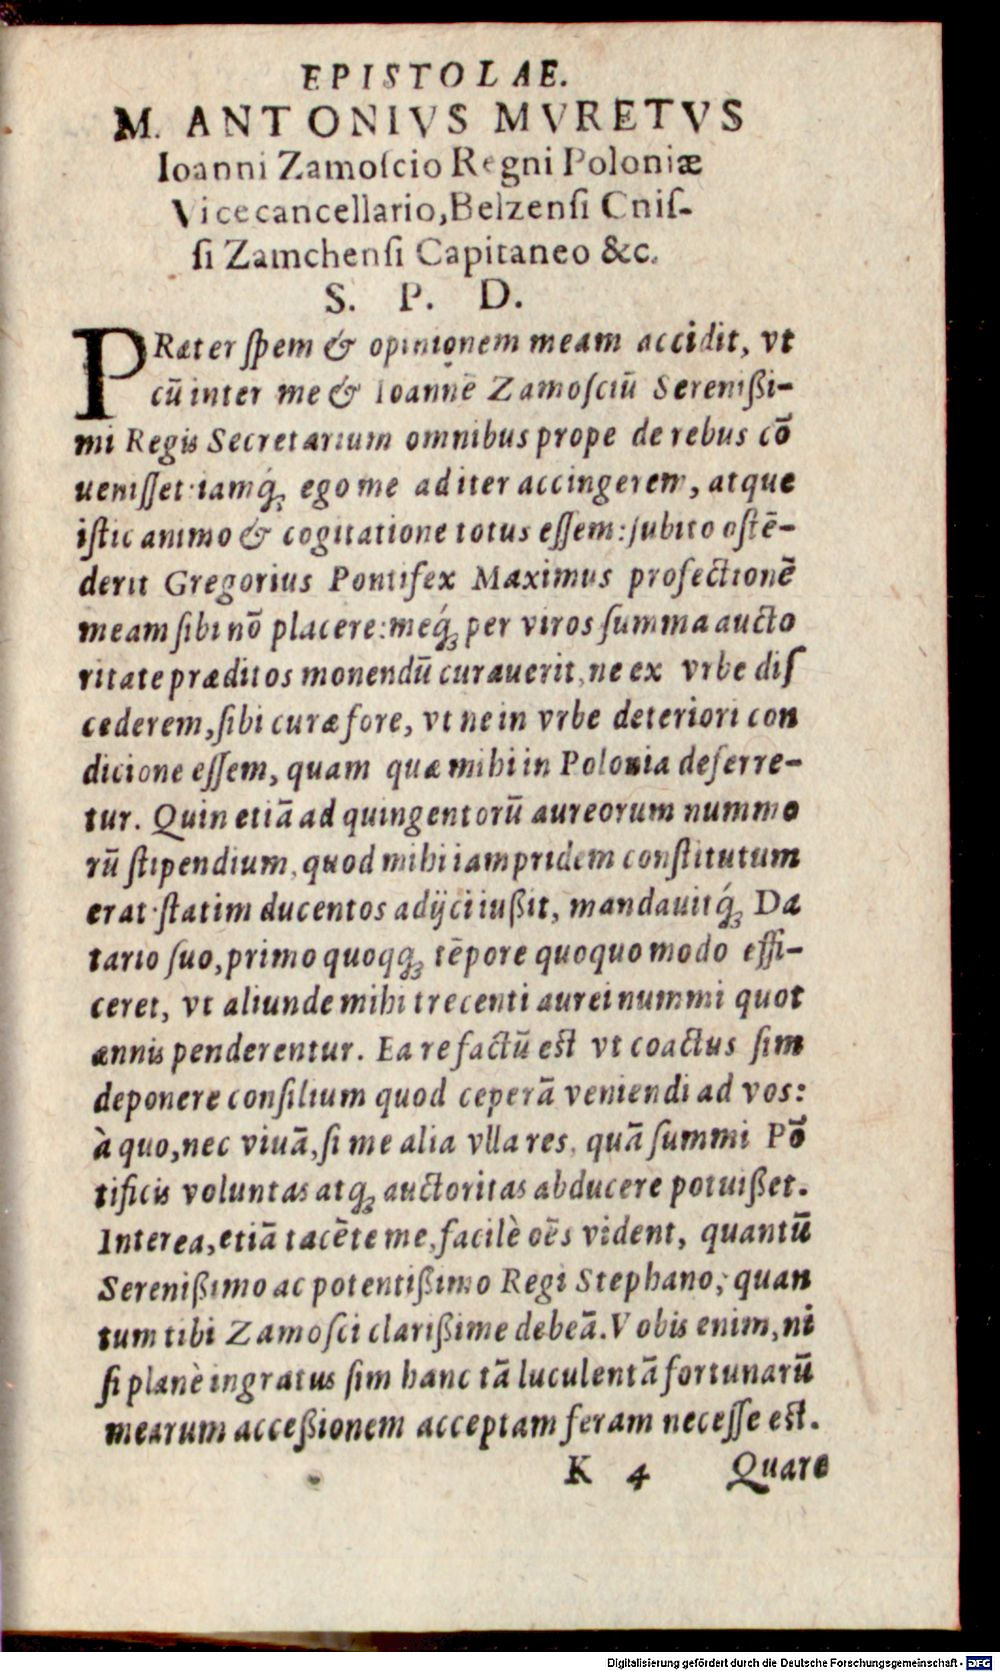 EPISTOLAE.
M. ANTONIVS MVRETVS
Ioanni Zamoſcio Regni Poloniæ
Vicecancellario, Belzenſi Cniſ-
ſi Zamchenſi Capitaneo &c.
S. P. D.
PRæter ſpem & opinionem meam accidit, vt
cū inter me & Ioannē Zamoſciū Sereniſsi-
mi Regis Secretarium omnibus prope de rebus cō
ueniſſet: iamq́; ego me ad iter accingerem, atque
iſtic animo & cogitatione totus eſſem: ſubito oſtē-
derit Gregorius Pontifex Maximus profectionē
meam ſibi nō placere: meq́; per viros ſumma aucto
ritate præditos monendū curauerit, ne ex vrbe diſ
cederem, ſibi curæ fore, vt ne in vrbe deteriori con
dicione eſſem, quam quæ mihi in Polonia deferre-
tur. Quin etiā ad quingentorū aureorum nummo
rū ſtipendium, quod mihi iampridem conſtitutum
erat ſtatim ducentos adijci iuſsit, mandauitq́; Da
tario ſuo, primo quoqq; tēpore quoquo modo effi-
ceret, vt aliunde mihi trecenti aurei nummi quot
annis penderentur. Ea re factū eſt vt coactus ſim
deponere conſilium quod ceperā veniendi ad vos:
à quo, nec viuā, ſi me alia vlla res, quā ſummi Pō
tificis voluntas atq; auctoritas abducere potuiſset.
Interea, etiā tacēte me, facilè oēs vident, quantū
Sereniſsimo ac potentiſsimo Regi Stephano, quan
tum tibi Zamoſci clariſsime debeā. Vobis enim, ni
ſi planè ingratus ſim hanc tā luculentā fortunarū
mearum acceſsionem acceptam feram neceſſe eſt.
K 4 Quare
Digitalisierung gefördert durch die Deutsche Forschungsgemeinschaft - DFG